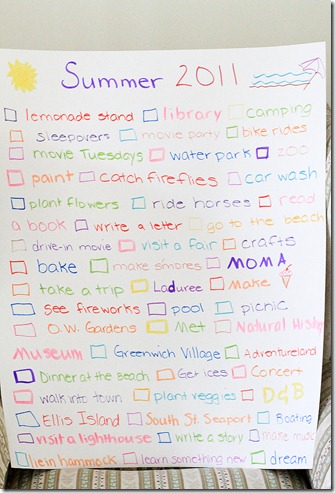 Summer 2011
lemonade stand library camping
sleepovers movie party bike rides
movie Tuesdays water park zoo
paint catch fireflies car wash
plant flowers ride horses read
a book write a letter go to the beach
drive-in movie visit a fair crafts
bake make s'mores MOMA
take a trip Laduree Make
see fireworks pool picnic
O.W. Gardens Met Natural History
Museum Greenwich Village Adventureland
Dinner at the Beach Get ices Concert
walk into town plant veggies D&B
Ellis Island South St. Seaport Boating
visit a lighthouse write a story make music
lie in hammock learn something new dream